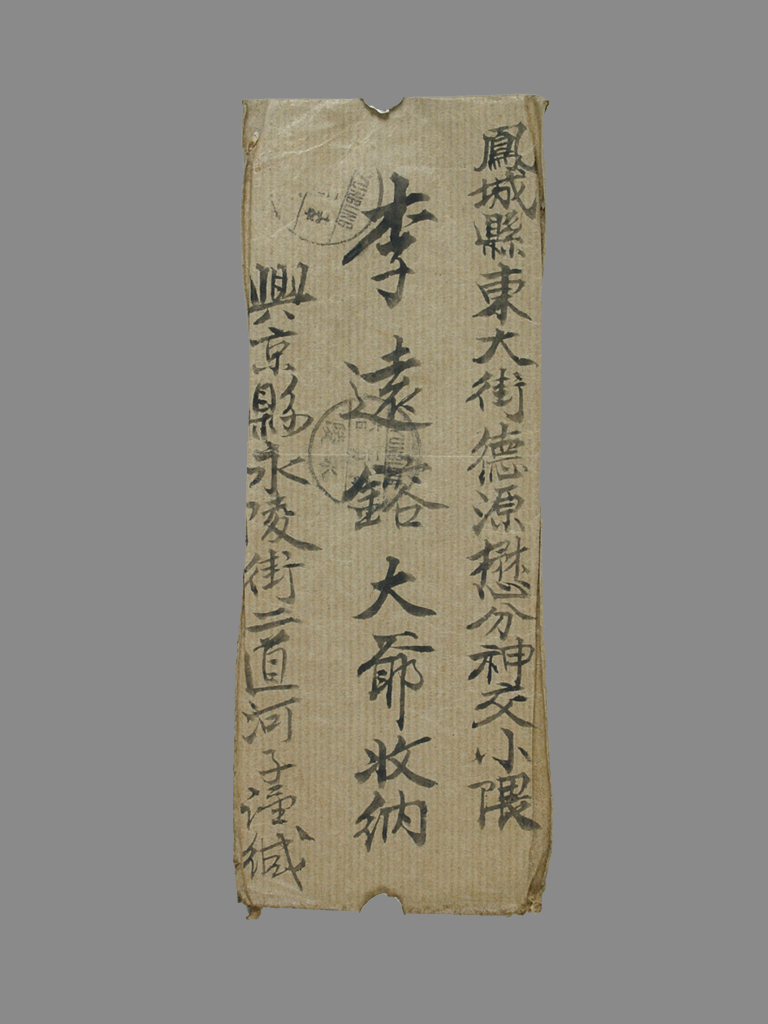 鳳城縣東大街德源懋分神交小隈
李遠鎔大爺收納
興京縣永陵街二道河子謹緘
YUNGLING